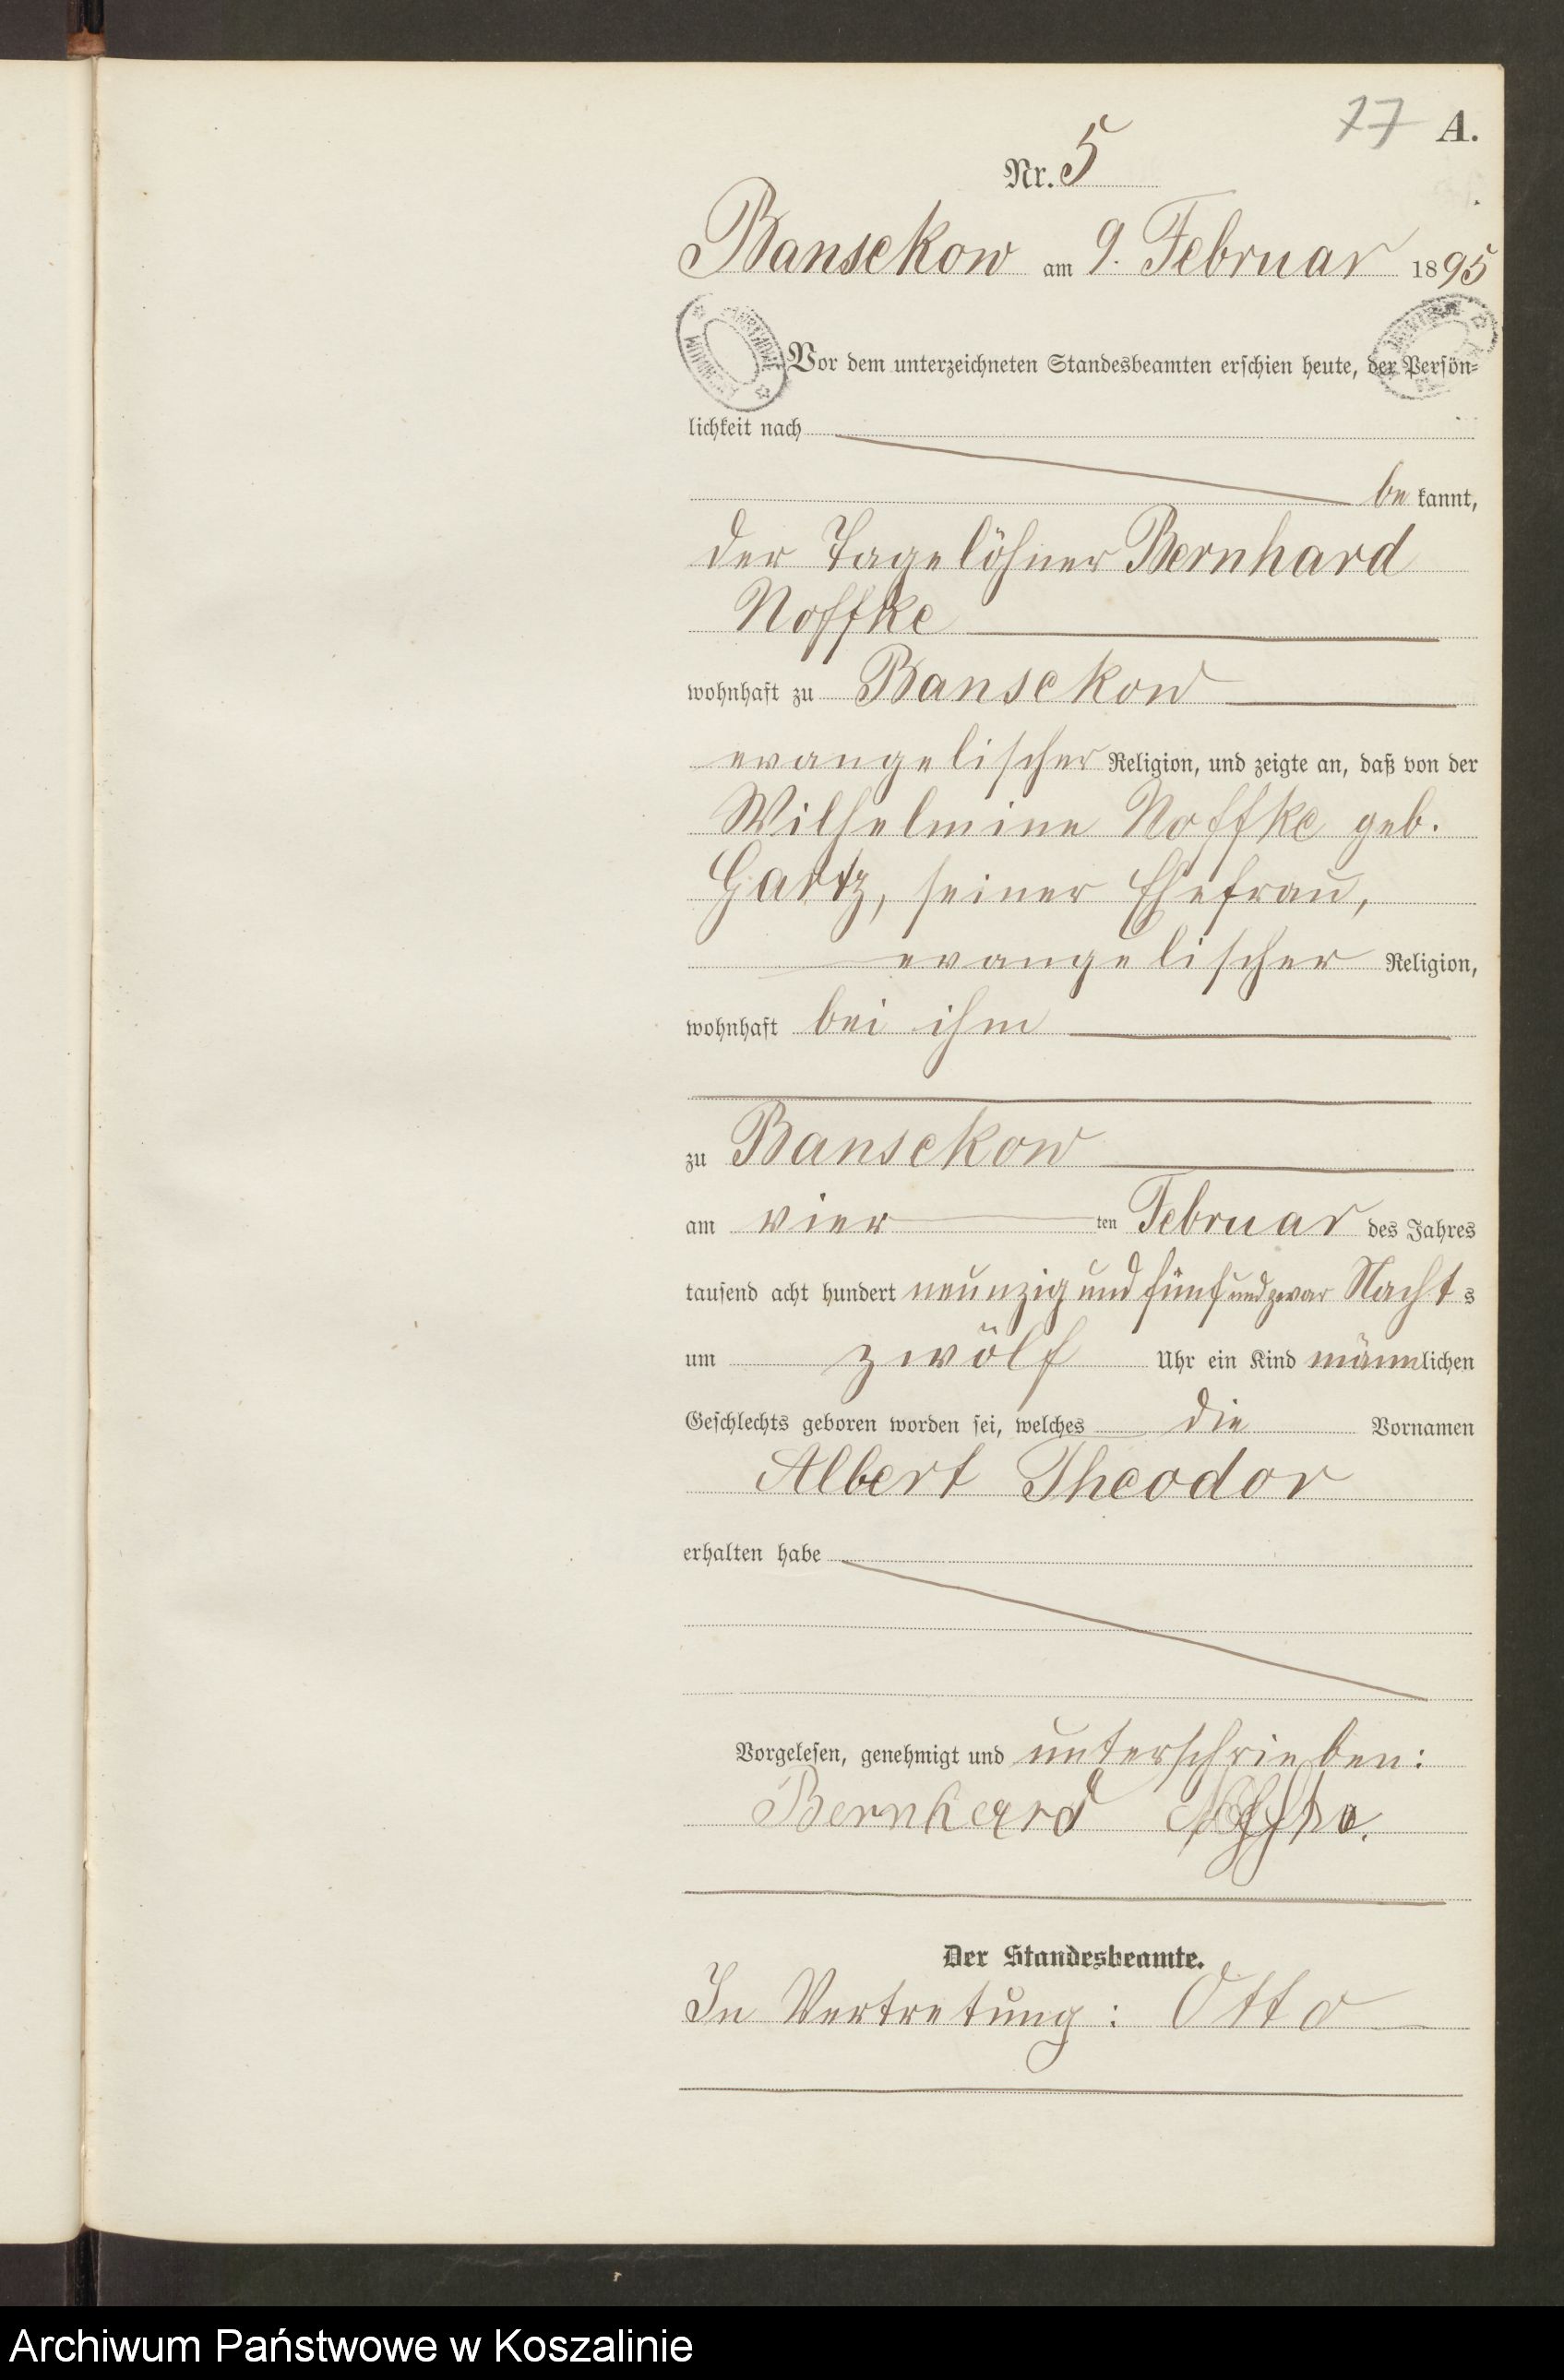 17 A.
Nr. 5
Bansekow am 9. Februar 1895
Vor dem unterzeichneten Standesbeamten erschien heute, der Persön=
lichkeit nach
be kannt,
der Tagelöhner Bernhard
Noffke
wohnhaft zu Bansekow
evangelischer Religion, und zeigte an, daß von der
Wilhelmine Noffke geb.
Gartz, seiner Ehefrau,
evangelischer Religion,
wohnhaft bei ihm
zu Bansekow
am vier ten Februar des Jahres
tausend acht hundert neunzig und fünf und zwar Nacht s
um zwölf Uhr ein Kind männlichen
Geschlechts geboren worden sei, welches die Vornamen
Albert Theodor
erhalten habe
Vorgelesen, genehmigt und unterschrieben:
Bernhard Noffke.
Der Standesbeamte.
In Vertretung: Otto
Archiwum Państwowe w Koszalinie